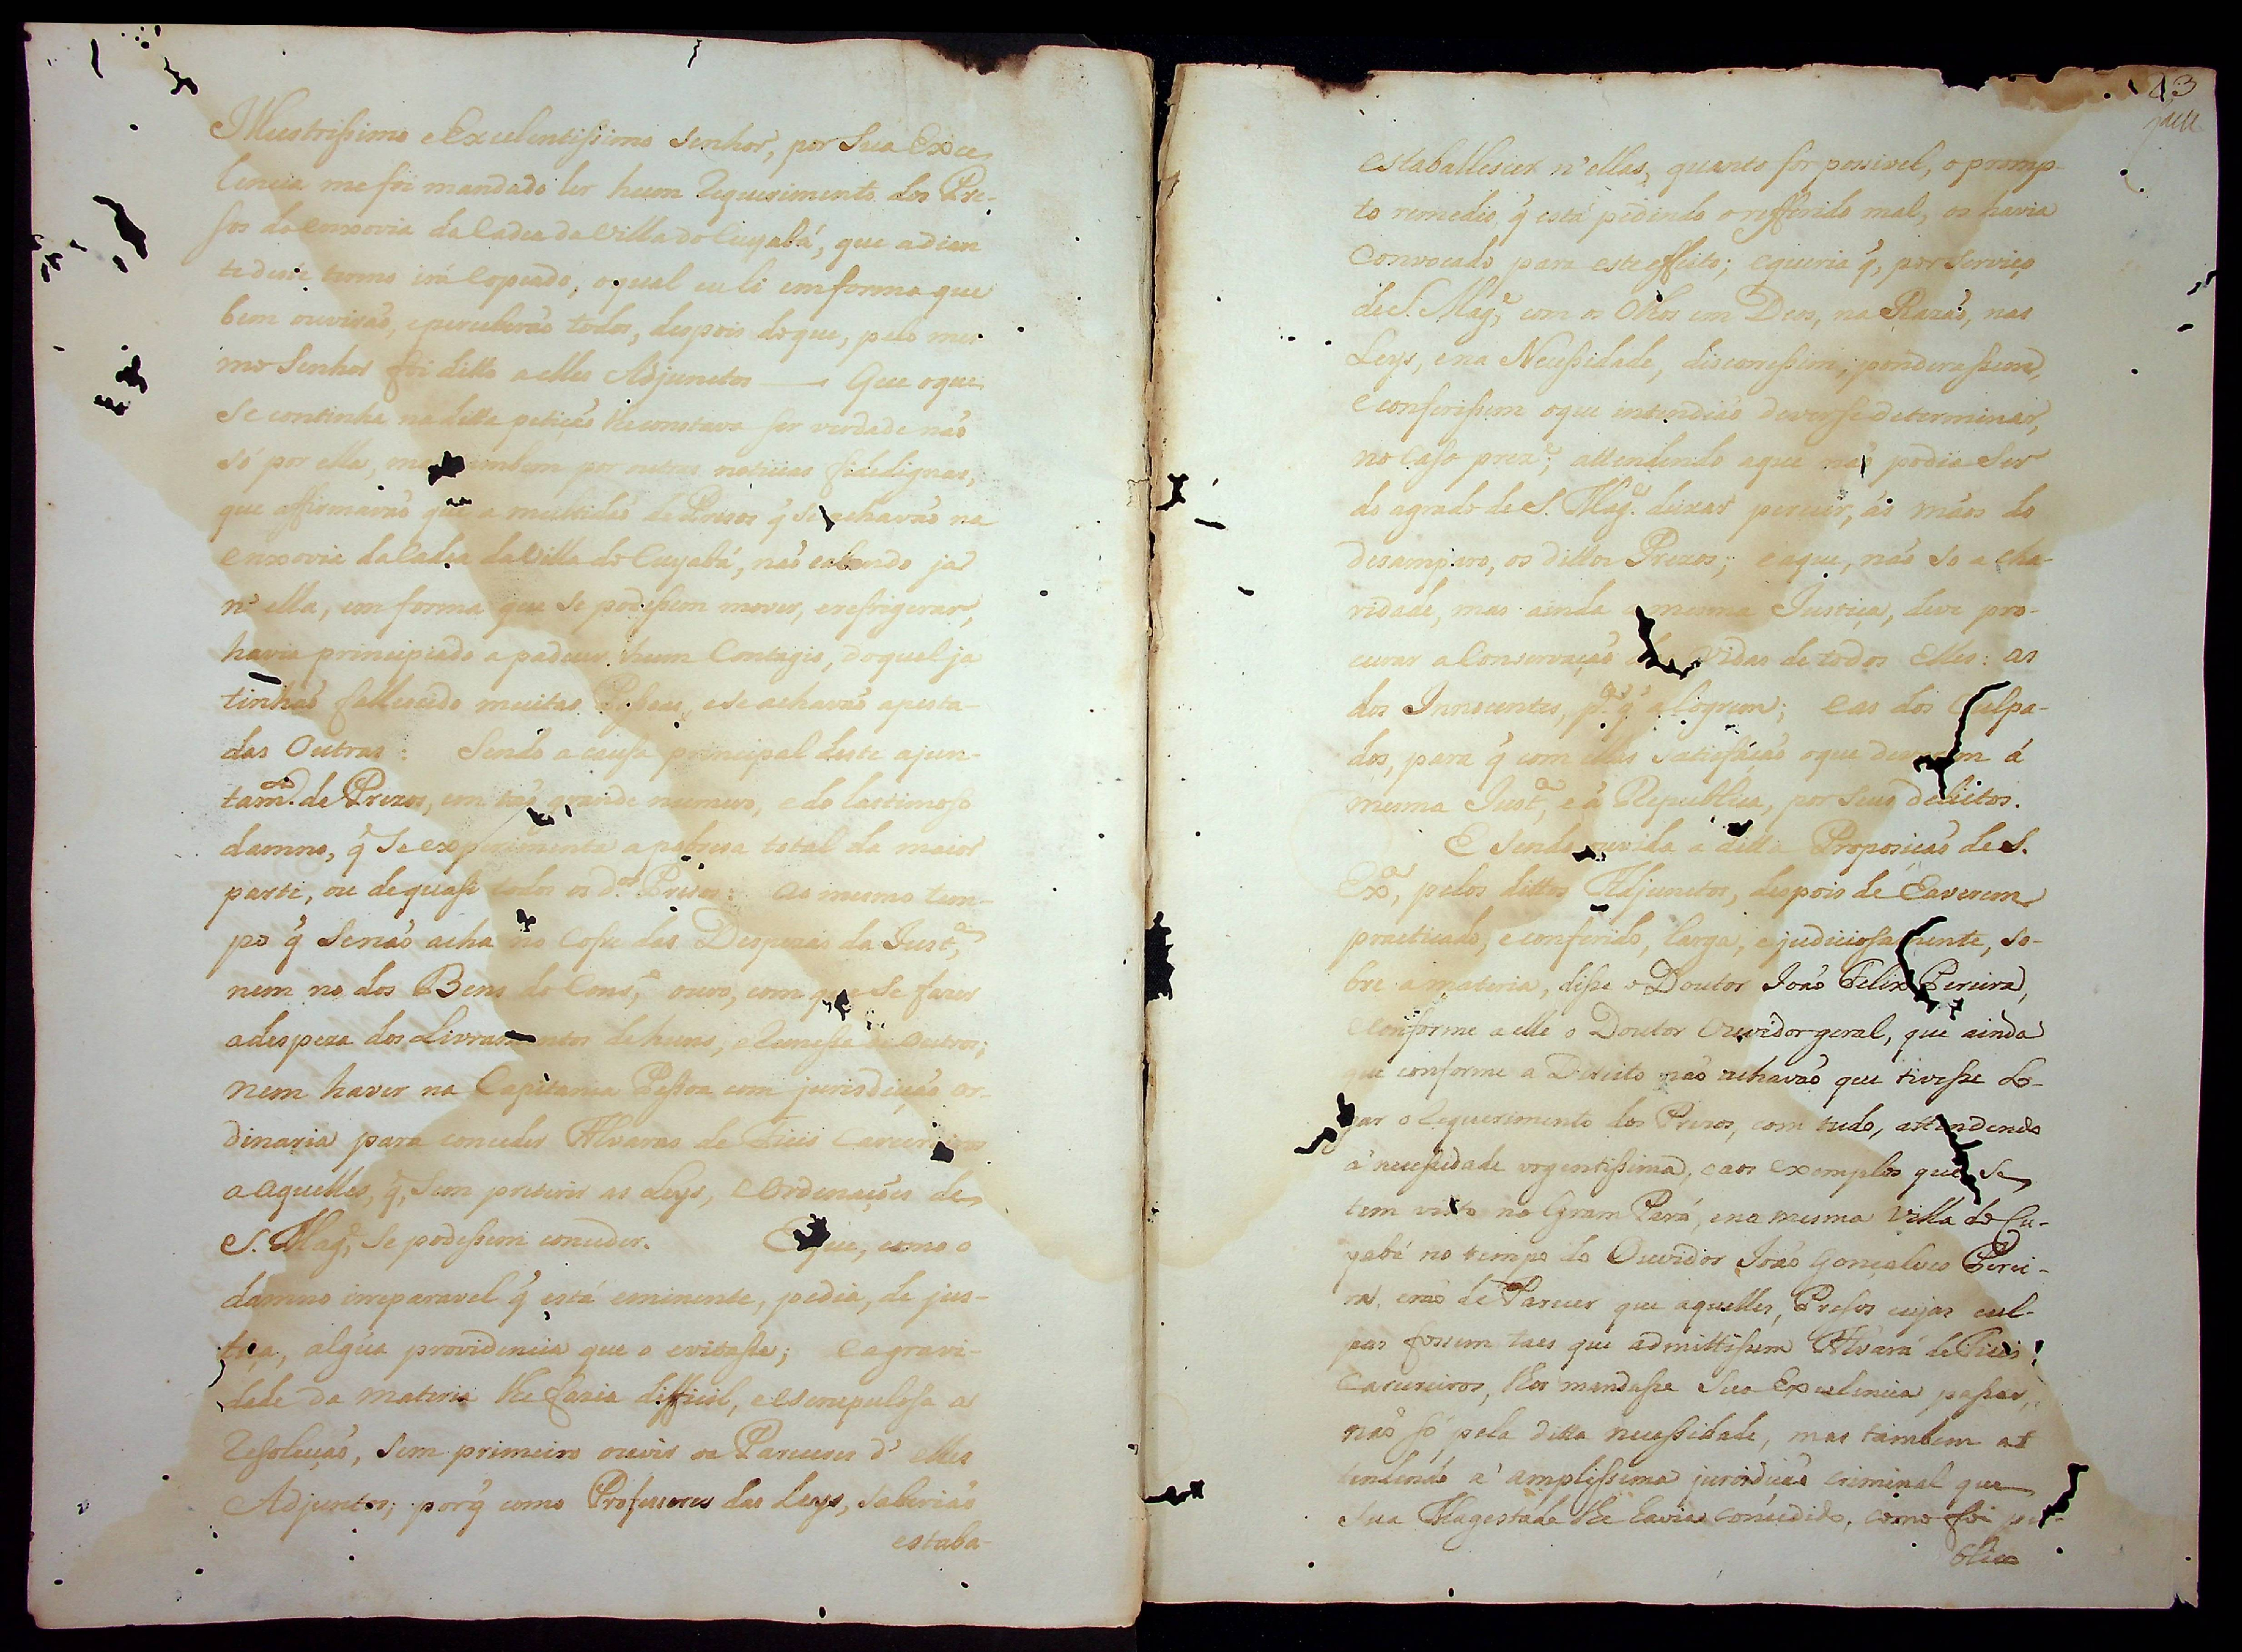 Illustrissimo e Excelentissimo Senhor, por Sua Exce
lencia me foi mandado ler hum Requerimento dos Pre-
sos da enxovia da Cadea da Villa do Cuyabá, que adian
te deste termo irá Copeado, o qual eu li em forma que
bem ouvirão, e perceberão todos, despois do que, pelo mes
mo Senhor foi ditto a elles Adjunctos — Que o que
Se continha na ditta petição lhe constava ser verdade não
só por ella, mas tambem por outras noticias fidedignas,
que affirmavão que a multidão de Prezos q̃ se achavão na
enxovia da Cadea da Villa do Cuyabá, não cabendo já
n'ella, em forma que se podessem mover, e refrigerar,
havia principiado a padecer hum Contagio, do qual ja
tinhão fallecido muitas Pessoas, e se achavão apesta-
das Outras: Sendo a causa principal deste ajun-
tam.to de Prezos, em tão grande numero, e do lastimoso
damno, q̃ Se experimenta a pobreza total da maior
parte, ou de quasi todos os d.os Prezos: ao mesmo tem-
po q̃ Se não acha no Cofre das Despezas da Just.ª,
nem no dos Bens do Cons.º, ouro, com que Se fazer
a despeza dos Livramentos de huns, e Remessa de outros;
nem haver na Capitania Pessoa com jurisdicção or-
dinaria para conceder Alvaras de Fieis Carcereiros
a aquelles, q̃, Sem preterir as Leys, e Ordenações de
S. Mag.e, Se podessem conceder. E que, como o
damno irreparavel q̃ está eminente, pedia, de jus-
tiça, algũa providencia que o evitasse; e a gravi-
dade da materia lhe fazia difficil, e escrupulosa a
Resolução, Sem primeiro ouvir os Pareceres d'elles
Adjuntos; porq̃ como Professores das Leys, saberião
estaba-
43
estaballescer n'ellas, quanto for possivel, o promp-
to remedio, q̃ está pedindo o refferido mal, os havia
Convocado para este effeito; e queria q̃, por Serviço
de S. Mag.e, com os Olhos em Deos, na Razão, nas
Leys, e na Necessidade, discorressem, ponderassem,
e conferissem o que intendião dever se determinar,
no Caso prez.e, attendendo a que não podia Ser
do agrado de S. Mag.e deixar perecer, ás mãos do
desamparo, os dittos Prezos; e a que, não so a Cha-
ridade, mas ainda a mesma Justiça, deve pro-
curar a Conservação das vidas de todos elles: as
dos Innocentes, p.ª q̃ a logrem; e as dos Culpa-
dos, para q̃ com ellas satisfação o que deverem á
mesma Just.ª, e á Republica, por Seus delictos.
E Sendo ouvida a ditta Proposição de S.
Ex.ª, pelos dittos Adjunctos, despois de haverem
practicado, e conferido, larga, e judiciosamente, so-
bre a materia, disse o Doutor João Felix Pereira,
e conforme a elle o Doutor Ouvidor geral, que ainda
que conforme a Direito não achavão que tivesse Lo-
gar o Requerimento dos Prezos, com tudo, attendendo
á necessidade urgentissima, e aos exemplos que Se
tem visto no Gram Pará, e na mesma Villa do Cu-
yabá no tempo do Ouvidor João Gonçalves Perei-
ra, erão de Parecer que aquelles Presos cujas cul-
pas fossem taes que admittissem Alvará de Fieis
Carcereiros, lhos mandasse Sua Excelencia passar,
não só pela ditta necessidade, mas tambem at
tendendo á amplissima jurisdicão Criminal que
Sua Magestade lhe havia concedido, como foi pu-
blico